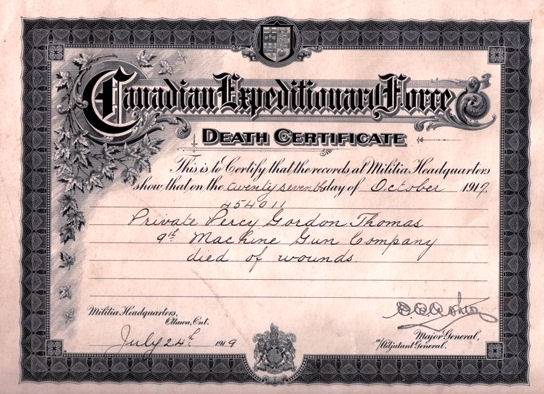 Canadian Expeditionary Force
DEATH CERTIFICATE
This is to Certify that the records at Militia Headquarters
show that on the twenty seventh day of October 1917.
454011
Private Percy Gordon Thomas
9th Machine Gun Company
died of wounds.
Militia Headquarters,
Ottawa, Ont.
July 24th 1919
Major General,
Adjutant General.